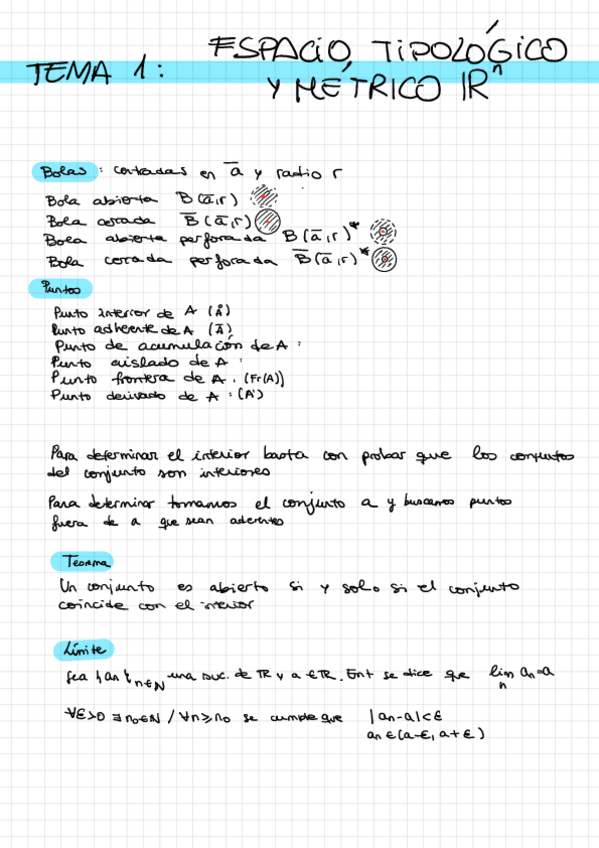 TEMA 1: ESPACIO TIPOLÓGICO
Y MÉTRICO ℝⁿ
Bolas: centradas en a̅ y radio r
Bola abierta B(a̅,r)
Bola cerada B̅(a̅,r)
Bola abierta perforada B(a̅,r)*
Bola cerrada perforada B̅(a̅,r)*
Puntos
Punto interior de A (Å)
Punto adherente de A (A̅)
Punto de acumulación de A:
Punto aislado de A:
Punto frontera de A: (Fr(A))
Punto derivado de A: (A')
Para determinar el interior basta con probar que los conjuntos
del conjunto son interiores
Para determinar tomamos el conjunto a y buscamos puntos
fuera de a que sean aderentes
Teorema
Un conjunto es abierto si y solo si el conjunto
coincide con el interior
Límite
Sea {an}n∈ℕ una suc. de ℝ y a ∈ ℝ. Ent se dice que lim an=a
n
∀ε>0 ∃n₀∈ℕ / ∀n≥n₀ se cumple que |an-a|<ε
an∈(a-ε, a+ε)